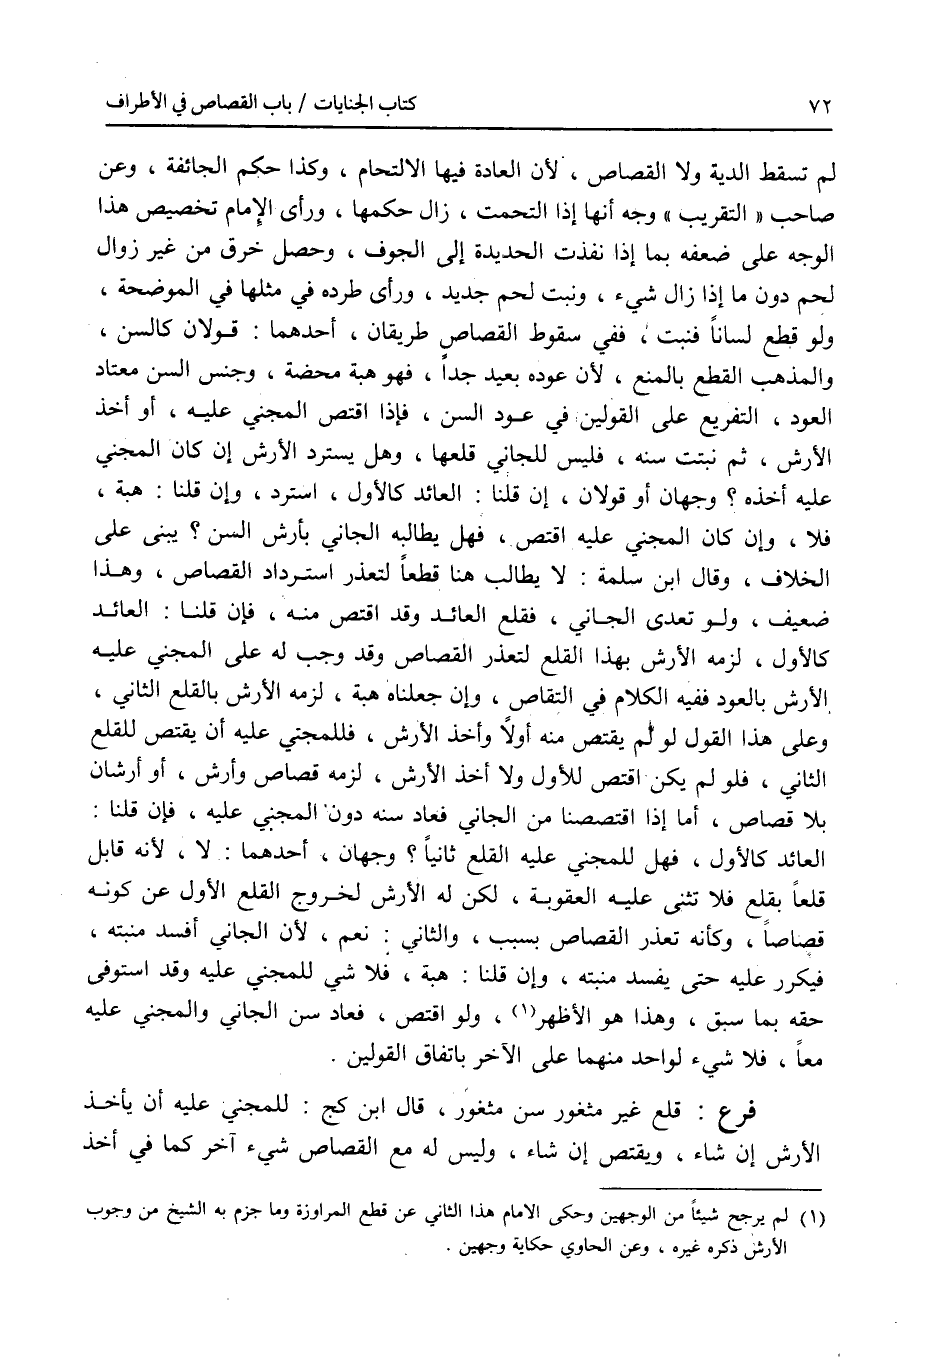 ٧٢
كتاب الجنايات / باب القصاص في الأطراف
لم تسقط الدية ولا القصاص ، لأن العادة فيها الالتحام ، وكذا حكم الجائفة ، وعن
صاحب « التقريب » وجه أنها إذا التحمت ، زال حكمها ، ورأى الإمام تخصيص هذا
الوجه على ضعفه بما إذا نفذت الحديدة إلى الجوف ، وحصل خرق من غير زوال
لحم دون ما إذا زال شيء ، ونبت لحم جديد ، ورأى طرده في مثلها في الموضحة ،
ولو قطع لساناً فنبت ، ففي سقوط القصاص طريقان ، أحدهما : قولان كالسن ،
والمذهب القطع بالمنع ، لأن عوده بعيد جداً ، فهو هبة محضة ، وجنس السن معتاد
العود ، التفريع على القولين في عود السن ، فإذا اقتص المجني عليه ، أو أخذ
الأرش ، ثم نبتت سنه ، فليس للجاني قلعها ، وهل يسترد الأرش إن كان المجني
عليه أخذه ؟ وجهان أو قولان ، إن قلنا : العائد كالأول ، استرد ، وإن قلنا : هبة ،
فلا ، وإن كان المجني عليه اقتص ، فهل يطالبه الجاني بأرش السن ؟ يبنى على
الخلاف ، وقال ابن سلمة : لا يطالب هنا قطعاً لتعذر استرداد القصاص ، وهذا
ضعيف ، ولو تعدى الجاني ، فقلع العائد وقد اقتص منه ، فإن قلنا : العائد
كالأول ، لزمه الأرش بهذا القلع لتعذر القصاص وقد وجب له على المجني عليه
الأرش بالعود ففيه الكلام في التقاص ، وإن جعلناه هبة ، لزمه الأرش بالقلع الثاني ،
وعلى هذا القول لو لم يقتص منه أولاً وأخذ الأرش ، فللمجني عليه أن يقتص للقلع
الثاني ، فلو لم يكن اقتص للأول ولا أخذ الأرش ، لزمه قصاص وأرش ، أو أرشان
بلا قصاص ، أما إذا اقتصصنا من الجاني فعاد سنه دون المجني عليه ، فإن قلنا :
العائد كالأول ، فهل للمجني عليه القلع ثانياً ؟ وجهان ، أحدهما : لا ، لأنه قابل
قلعاً بقلع فلا تثنى عليه العقوبة ، لكن له الأرش لخروج القلع الأول عن كونه
قصاصاً ، وكأنه تعذر القصاص بسبب ، والثاني : نعم ، لأن الجاني أفسد منبته ،
فيكرر عليه حتى يفسد منبته ، وإن قلنا : هبة ، فلا شي للمجني عليه وقد استوفى
حقه بما سبق ، وهذا هو الأظهر(١) ، ولو اقتص ، فعاد سن الجاني والمجني عليه
معاً ، فلا شيء لواحد منهما على الآخر باتفاق القولين .
فرع : قلع غير مثغور سن مثغور ، قال ابن كج : للمجني عليه أن يأخذ
الأرش إن شاء ، ويقتص إن شاء ، وليس له مع القصاص شيء آخر كما في أخذ
(١) لم يرجح شيئاً من الوجهين وحكى الامام هذا الثاني عن قطع المراوزة وما جزم به الشيخ من وجوب
الأرش ذكره غيره ، وعن الحاوي حكاية وجهين .